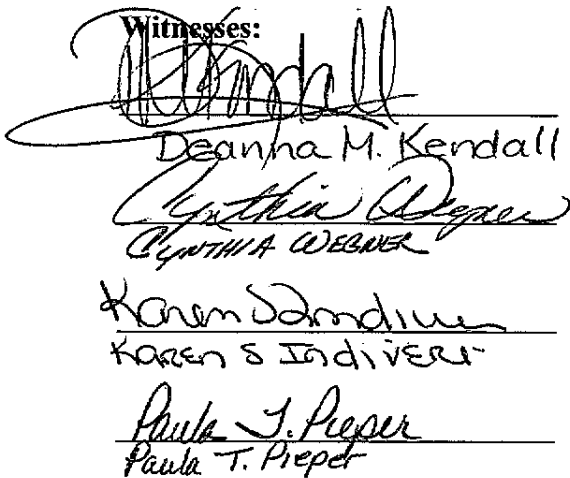 Witnesses:
DMKendall
Deanna M. Kendall
Cynthia Wegner
CYNTHIA WEGNER
Karen S Indiveri
Karen S Indiveri
Paula T. Pieper
Paula T. Pieper